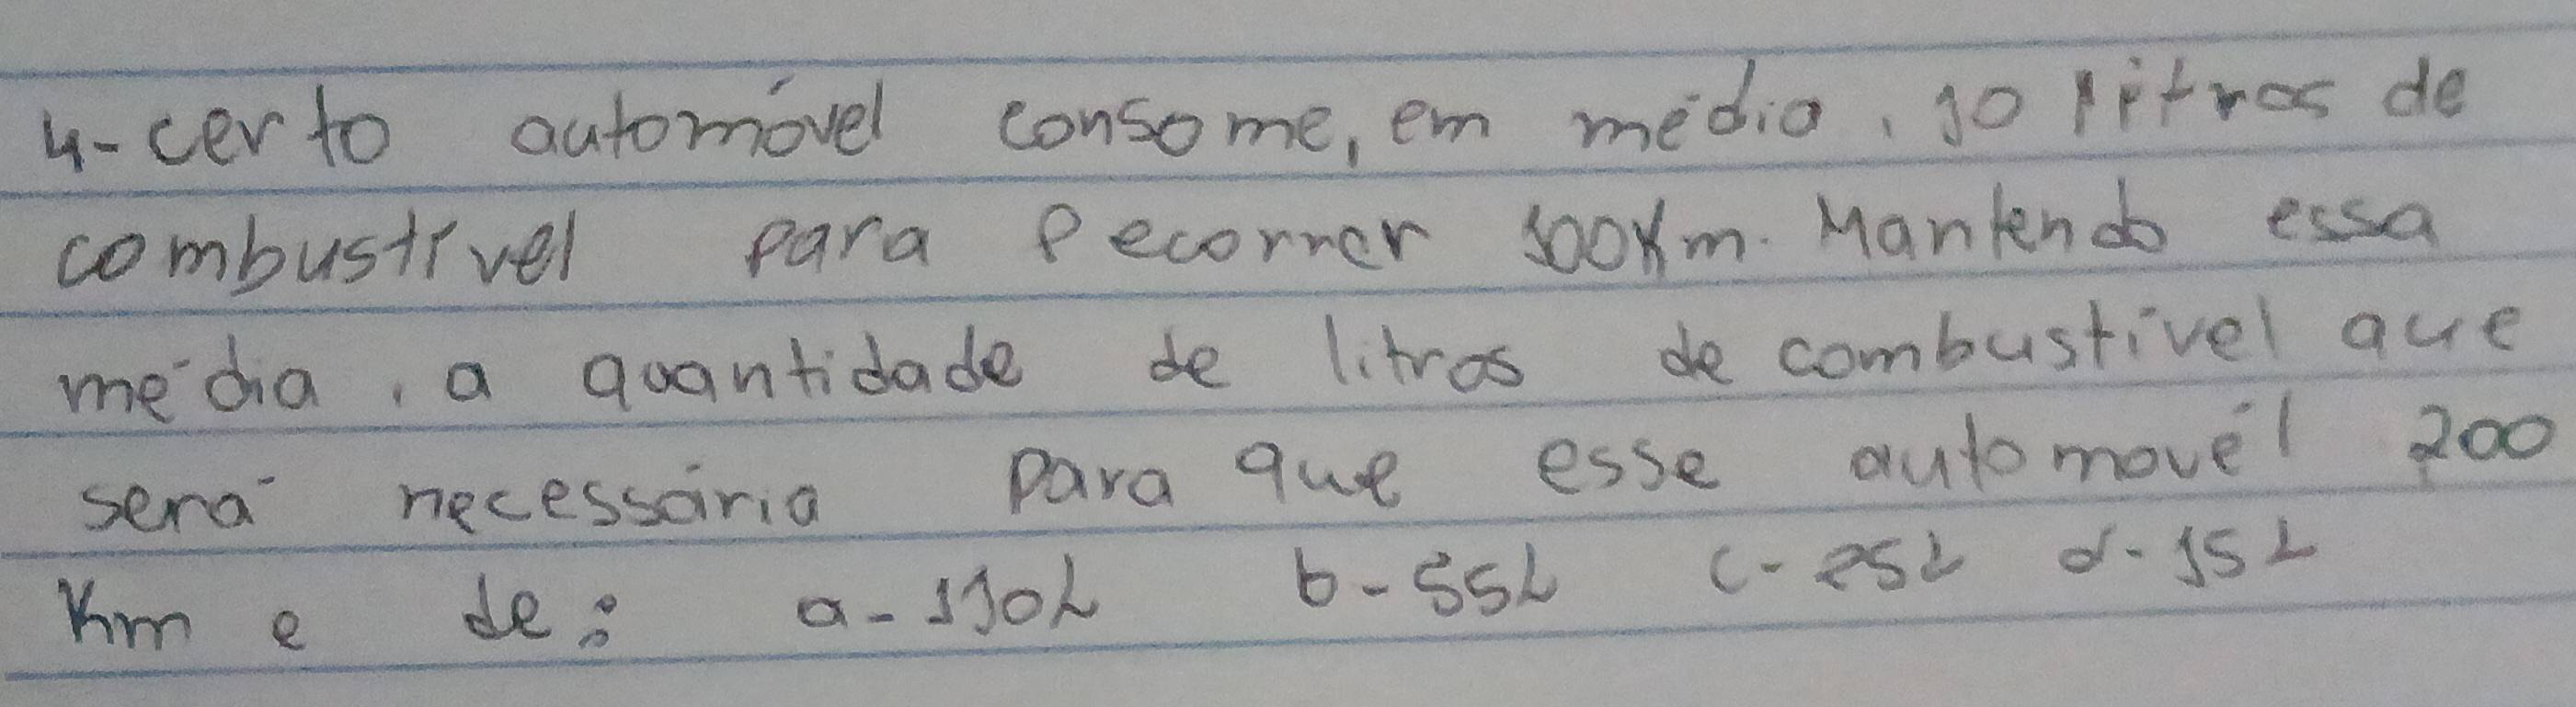 4-certo automóvel consome, em média, 10 litros de
combustível para Pecorrer 100Km. Mantendo essa
média, a quantidade de litros de combustível que
será necessária para que esse automovél 200
Km e de: a-110L b-55L c-25L d-15L